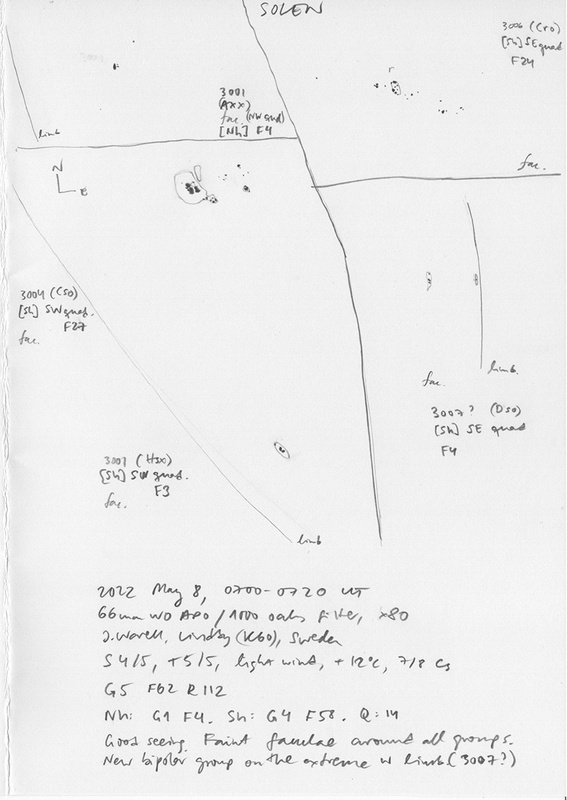 SOLEN
3006 (Cro)
[Sh] SE quad
F24
3001
(Axx)
fac. (NW quad)
[Nh] F4
limb
fac.
N
E
3004 (Cso)
[Sh] SW quad.
F27
fac.
limb
fac.
3007? (Dso)
[Sh] SE quad
F4
(Hsx)
[Sh] SW quad.
F3
fac.
limb
2022 May 8, 0700-0720 UT
66mm WO APO / 1000 oaks filter, x80
J. Warell, Lindby (K60), Sweden
S 4/5, T 5/5, light wind, +12°C, 7/8 Cs
G5 F62 R112
Nh: G1 F4. Sh: G4 F58. Q: 14
Good seeing. Faint faculae around all groups.
New bipolar group on the extreme W limb (3007?)